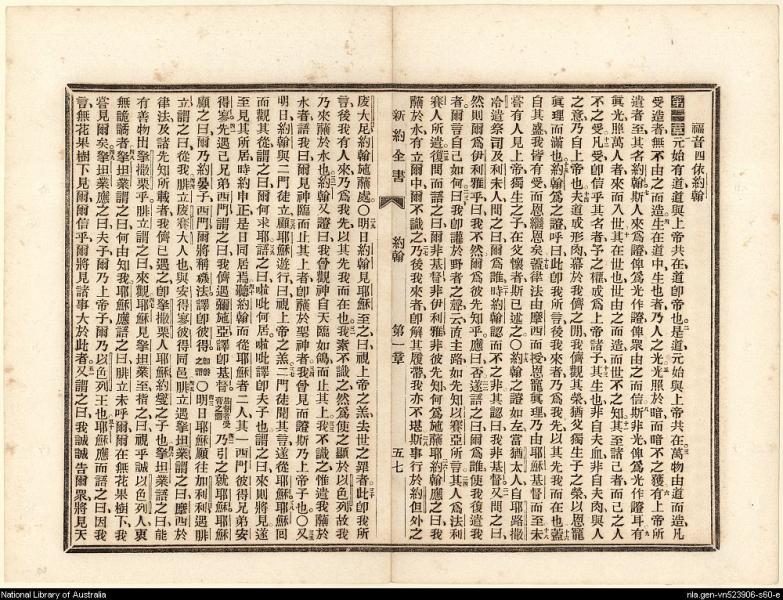 福音四依約翰
第一章元始有道道與上帝共在道卽帝也是道元始與上帝共在萬物由道而造凡
受造者無不由之而造生在道中生也者乃人之光光照於暗而暗不之獲有上帝所
遣者至其名約翰斯人來爲證俾爲光作證俾衆由之而信斯非光俾爲光作證耳有
眞光照萬人者來而入世其在世也世由之而造而世不之知其至諸己者而己之人
不之受凡受卽信乎其名者予之權成爲上帝諸子其生也非自夫血非自夫肉與人
之意乃自上帝也夫道成形肉幕於我儕之間我儕觀其榮猶父獨生子之榮以恩寵
眞理而滿也約翰爲之證呼曰此卽我所言後我來者乃爲我先以其先我而在也蓋
自其盛我皆有受而恩繼恩矣蓋律法由摩西而授恩寵眞理乃由耶穌基督而至未
嘗有人見上帝獨生之子在父懷者斯已述之〇約翰之證如左當猶太人自耶路撒
冷遣祭司及利未人問之曰爾爲誰時約翰認而不之非其認曰我非基督又問之曰
然則爾爲伊利雅乎曰我不然爾爲彼先知乎應曰否遂語之曰爾爲誰使我復遣我
者爾言自己如何曰我卽讙於野者之聲云直主路如先知以賽亞所言其人爲法利
賽人所遣復問而語之曰爾非基督非伊利雅非彼先知何爲施蘸耶約翰應之曰我
蘸於水有立爾中爾不識之乃後我來者卽解其履帶我亦不堪斯事行於約但外之
新約全書 約翰 第一章 五七
庋大尼約翰施蘸處〇明日約翰見耶穌至之曰視上帝之羔去世之罪者此卽我所
言後我有人來乃爲我先以其先我而在也我素不識之然爲使之顯於以色列故我
乃來蘸於水也約翰又證曰我曾觀神自天臨如鴿而止其上我不識之惟遣我蘸於
水者語我曰爾見神臨而止其上者卽蘸於聖神者我曾見而證斯乃上帝子也〇又
明日約翰與二門徒立顧耶穌遊行曰視上帝之羔二門徒聞其言遂從耶穌耶穌囘
而觀其從謂之曰爾何求耶語之曰嘞吡何居嘞吡譯卽夫子也謂之曰來則將見遂
至見其所居時約申正是日同居焉聽約翰而從耶穌者二人其一西門彼得兄弟安
得寥先遇己兄弟西門謂之曰我儕遇彌施亞譯卽基督乃引之就耶穌耶穌
顧之曰爾乃約晏子西門爾將稱磯法譯卽彼得〇明日耶穌願往加利利遇腓
立謂之曰從我腓立庋賽大人也與安得寥彼得同邑腓立遇拏坦業謂之曰摩西於
律法及諸先知所載者我儕已遇之卽拏撒㗚人耶穌約燮之子也拏坦業語之曰能
有善物出拏撒㗚乎腓立謂之曰來觀耶穌見拏坦業至指之曰視乎誠以色列人衷
無詭譎者拏坦業謂之曰何由知我耶穌應語之曰腓立未呼爾爾在無花果樹下我
嘗見爾矣拏坦業應之曰夫子爾乃上帝子爾乃以色列王也耶穌應而語之曰因我
言無花果樹下見爾爾信乎爾將見諸事大於此者又謂之曰我誠誠告爾衆將見天
National Library of Australia
nla.gen-vn523906-s60-e